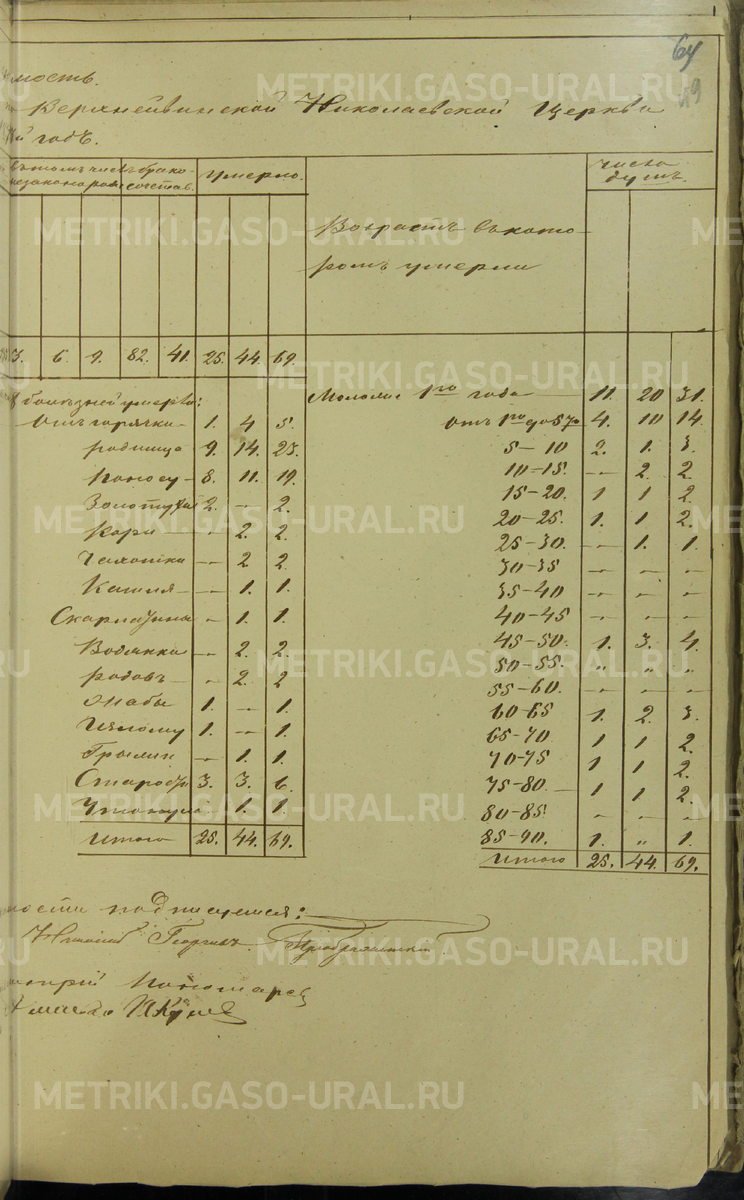 64
49
мость.
Верхнейвинской Николаевской Церкви
й годъ.
въ томъ числѣ
незаконорож
брако-
сочетав.
умерло.
Возрастъ въ кото-
ромъ умерли
число
душъ.
3. 6. 9. 82. 41. 25. 44. 69.
болѣзней умерло:
Отъ горячки 1. 4 5.
родимца 9. 14. 23.
Поносу 8. 11. 19.
Золотухи 2. — 2.
Кори — 2. 2.
Чахотки — 2 2.
Кашля — 1. 1.
Скарлатина — 1. 1.
Водянки — 2. 2.
родовъ — 2. 2
Жабы 1. — 1.
1. — 1.
Грыжи — 1. 1.
Старости 3. 3. 6.
1. 1.
Итого 25. 44. 69.
Моложе 1го года 11. 20 31.
Отъ 1го до 5 4. 10 14.
5-10 2. 1. 3.
10-15. — 2. 2.
15-20. 1 1 2.
20-25. 1. 1 2.
25-30. — 1. 1.
30-35 — — —
35-40 — — —
40-45 — — —
45-50. 1. 3. 4.
50-55. „ „ „
55-60. — — —
60-65 1. 2. 3.
65-70 1 1 2.
70-75 1 1 2.
75-80. 1 1 2.
80-85 — — —
85-90. 1. „ 1.
Итого 25. 44. 69.
ности подписуемся:
Николай Георгіевъ Преображенскій
Пономарев
METRIKI.GASO-URAL.RU